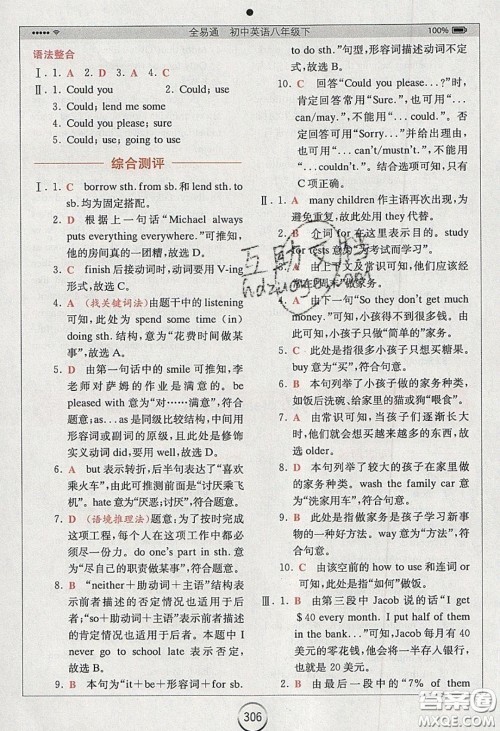 全易通 初中英语八年级下
100%
语法整合
Ⅰ. 1. A 2. D 3. A 4. A
Ⅱ. 1. Could you 2. Could; use
3. Could; lend me some
4. Could you please; sure
5. Could; use; going to use
综合测评
Ⅰ. 1. C borrow sth. from sb. 和 lend sth. to
sb. 均为固定搭配。
2. D 根据上一句话“Michael always
puts everything everywhere.”可推知,
他的房间真的一团糟。故选 D。
3. C finish 后接动词时,动词要用 V-ing
形式。故选 C。
4. A (找关键词法) 由题干中的 listening
可知,此处为 spend some time (in)
doing sth. 结构,意为“花费时间做某
事”,故选 A。
5. D 由第一句话中的 smile 可推知,李
老师对萨姆的作业是满意的。be
pleased with 意为“对……满意”,符合
题意;as...as 是同级比较结构,中间用
形容词或副词的原级,且此处修饰
实义动词 did,要用 well,故选 D。
6. A but 表示转折,后半句表达了“喜欢
乘火车”,由此可推测前面是“讨厌乘飞
机”。hate 意为“厌恶;讨厌”,符合题意。
7. D (语境推理法) 题意:为了按时完成
这项工程,每个人在这项工作中都必
须尽一份力。do one's part in sth. 意
为“尽自己的职责做某事”,符合题意。
8. B “neither+助动词+主语”结构表
示前者描述的否定情况也适用于后
者;“so+助动词+主语”表示前者描述
的肯定情况也适用于后者。本题中 I
never go to school late 表示否定,
故选 B。
9. B 本句为“it+be+形容词+for sb.
to do sth.”句型,形容词描述动词不定
式,故选 B。
10. C 回答“Could you please...?”时,
肯定回答常用“Sure.”,也可用“...
can...”,不能用“...could...”;否
定回答可用“Sorry...”并给出理由,
也可用“...can't...”,不能用“...
couldn't.”。结合选项可知,只有
C 项正确。
Ⅱ. 1. A many children 作主语再次出现,为
避免重复,故此处用 they 代替。
2. B 介词 for 在这里表示目的。study
for tests 意为“为考试而学习”。
4. A 由下一句“So they don't get much
money.”可知,小孩得不到很多钱。由
此可知,小孩只做“简单的”家务。
5. C 此处是指很多小孩子只想买糖果。
buy 意为“买”。
6. B 本句列举了小孩子做的家务种类,
如饭后洗碗、给家里的猫或狗“喂食”。
7. A 由常识可知,当孩子们逐渐长大
时,他们会想买越来越多的东西,故
选 older。
8. A 本句列举了较大的孩子在家里做
的家务种类。wash the family car 意
为“洗家用车”。
9. B 此处是指做家务是孩子学习新事
物的一种好方式。way 意为“方法”,
符合句意。
10. C 由空前的 how to use 和连词 or
可知,此处是指“如何”做饭。
Ⅲ. 1. B 由第三段中 Jacob 说的话“I get
$ 40 every month. I put half of them
into a bank...”可知,Jacob 每月有 40
美元的零花钱,他会将一半存入银行,
也就是 20 美元。
2. D 由最后一段中的“7% of them
306